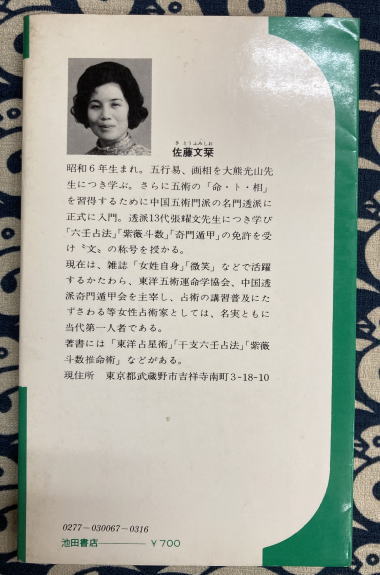 さとうふみしお
佐藤文栞
昭和6年生まれ。五行易、画相を大熊光山先
生につき学ぶ。さらに五術の「命・ト・相」
を習得するために中国五術門派の名門透派に
正式に入門。透派13代張耀文先生につき学び
「六壬占法」「紫薇斗数」「奇門遁甲」の免許を受
け〝文〟の称号を授かる。
現在は、雑誌「女姓自身」「微笑」などで活躍
するかたわら、東洋五術運命学協会、中国透
派奇門遁甲会を主宰し、占術の講習普及にた
ずさわる等女性占術家としては、名実ともに
当代第一人者である。
著書には「東洋占星術」「干支六壬占法」「紫薇
斗数推命術」などがある。
現住所 東京都武蔵野市吉祥寺南町3-18-10
0277-030067-0316
池田書店――――¥700